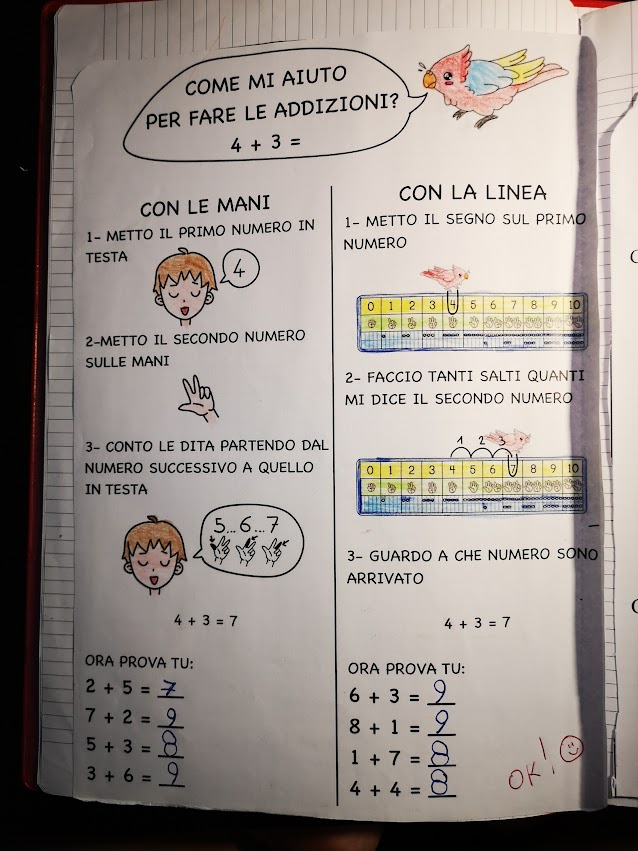 COME MI AIUTO
PER FARE LE ADDIZIONI?
4 + 3 =
CON LE MANI
1- METTO IL PRIMO NUMERO IN
TESTA
4
2-METTO IL SECONDO NUMERO
SULLE MANI
3- CONTO LE DITA PARTENDO DAL
NUMERO SUCCESSIVO A QUELLO
IN TESTA
5...6...7
4 + 3 = 7
ORA PROVA TU:
2 + 5 = 7
7 + 2 = 9
5 + 3 = 8
3 + 6 = 9
CON LA LINEA
1- METTO IL SEGNO SUL PRIMO
NUMERO
0 1 2 3 4 5 6 7 8 9 10
2- FACCIO TANTI SALTI QUANTI
MI DICE IL SECONDO NUMERO
1 2 3
0 1 2 3 4 5 6 7 8 9 10
3- GUARDO A CHE NUMERO SONO
ARRIVATO
4 + 3 = 7
ORA PROVA TU:
6 + 3 = 9
8 + 1 = 9
1 + 7 = 8
4 + 4 = 8
OK!